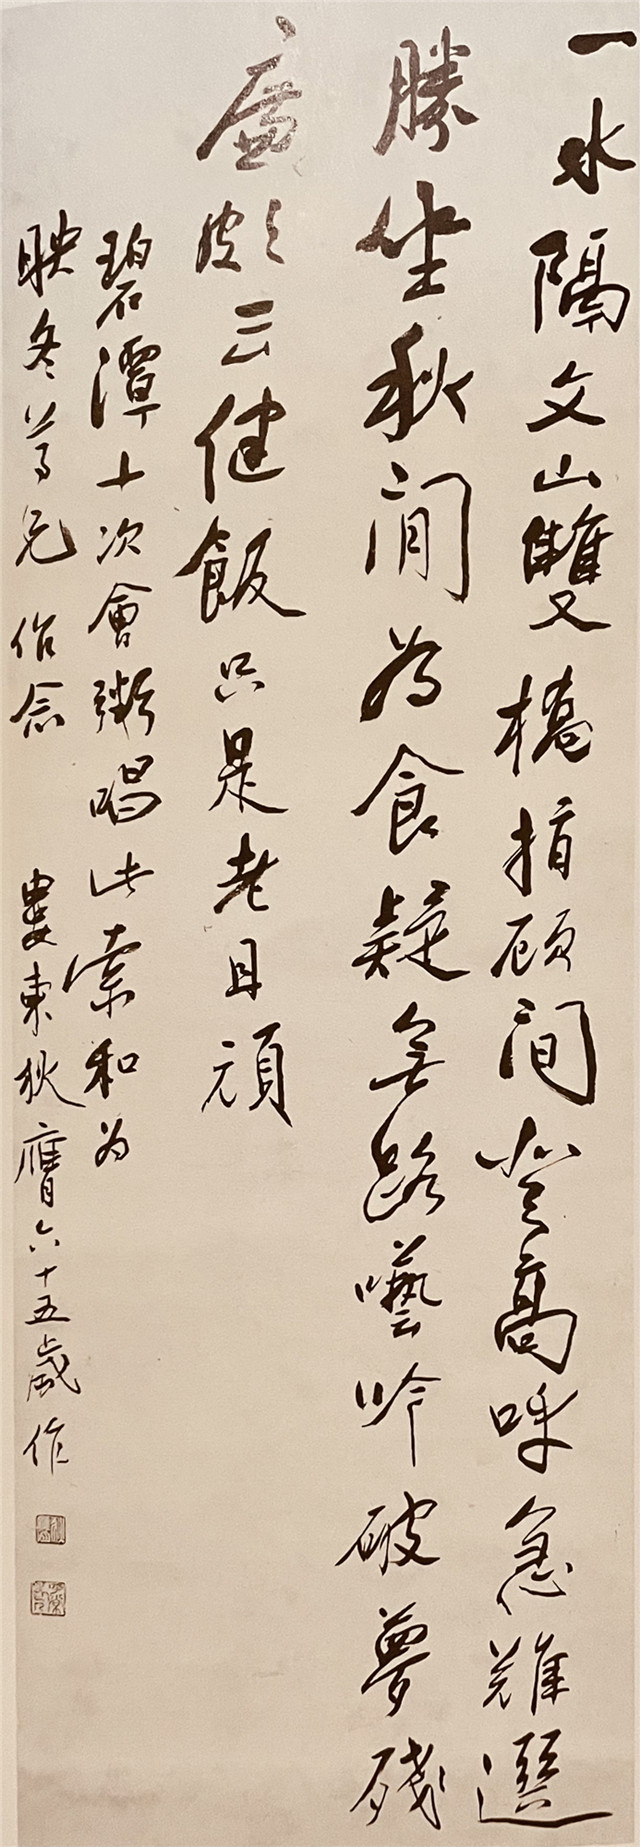 一水隔文山雙橈指顧間登高呼急難選
勝坐秋閒為食疑無路囈吟破夢殘
廉頗云健飯只是老且頑
碧潭十次會粥唱此索和为
映冬尊兄作念 婁東狄膺六十五歲作